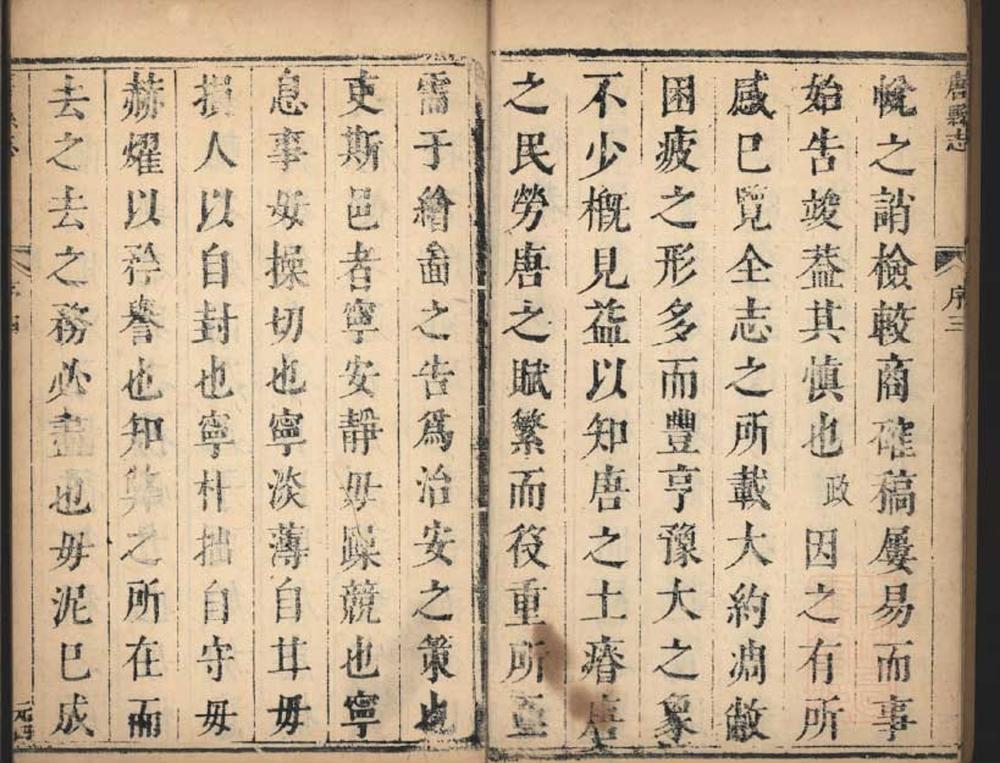 唐縣志
序三
悅之誚檢較商確稿屢易而事
始告竣葢其慎也政因之有所
感巳覽全志之所載大約凋敝
困疲之形多而豐亨豫大之象
不少概見益以知唐之土瘠唐
之民勞唐之賦繁而役重所亟
需于繪圖之告為治安之策也
吏斯邑者寧安靜毋躁競也寧
息事毋操切也寧淡薄自甘毋
損人以自封也寧朴拙自守毋
赫燿以矜譽也知弊之所在而
去之去之務必盡也毋泥巳成